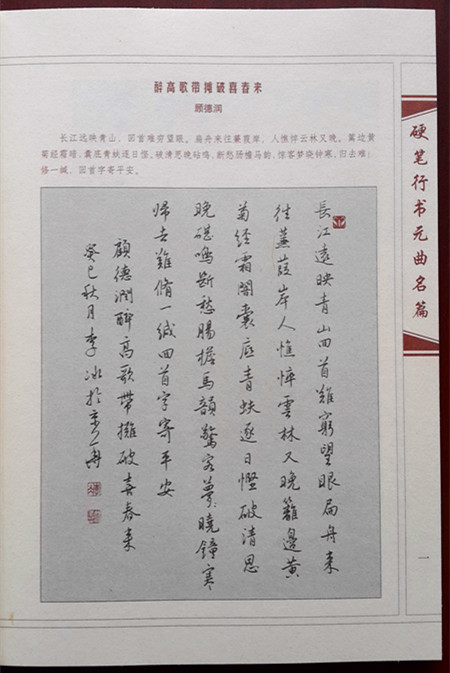 醉高歌带摊破喜春来
顾德润
长江远映青山,回首难穷望眼。扁舟来往蒹葭岸,人憔悴云林又晚。篱边黄
菊经霜暗,囊底青蚨逐日悭。破清思晚砧鸣,断愁肠檐马韵,惊客梦晓钟寒。归去难;
修一缄,回首字寄平安。
長江遠映青山回首難窮望眼扁舟来
往蒹葭岸人憔悴雲林又晚籬邊黄
菊經霜闇囊底青蚨逐日慳破清思
晚碪鳴斷愁腸檐馬韻驚客夢曉鐘寒
歸去難脩一缄回首字寄平安
顧德潤醉高歌帶攤破喜春来
癸巳秋月李冰於京舟
硬笔行书元曲名篇
一